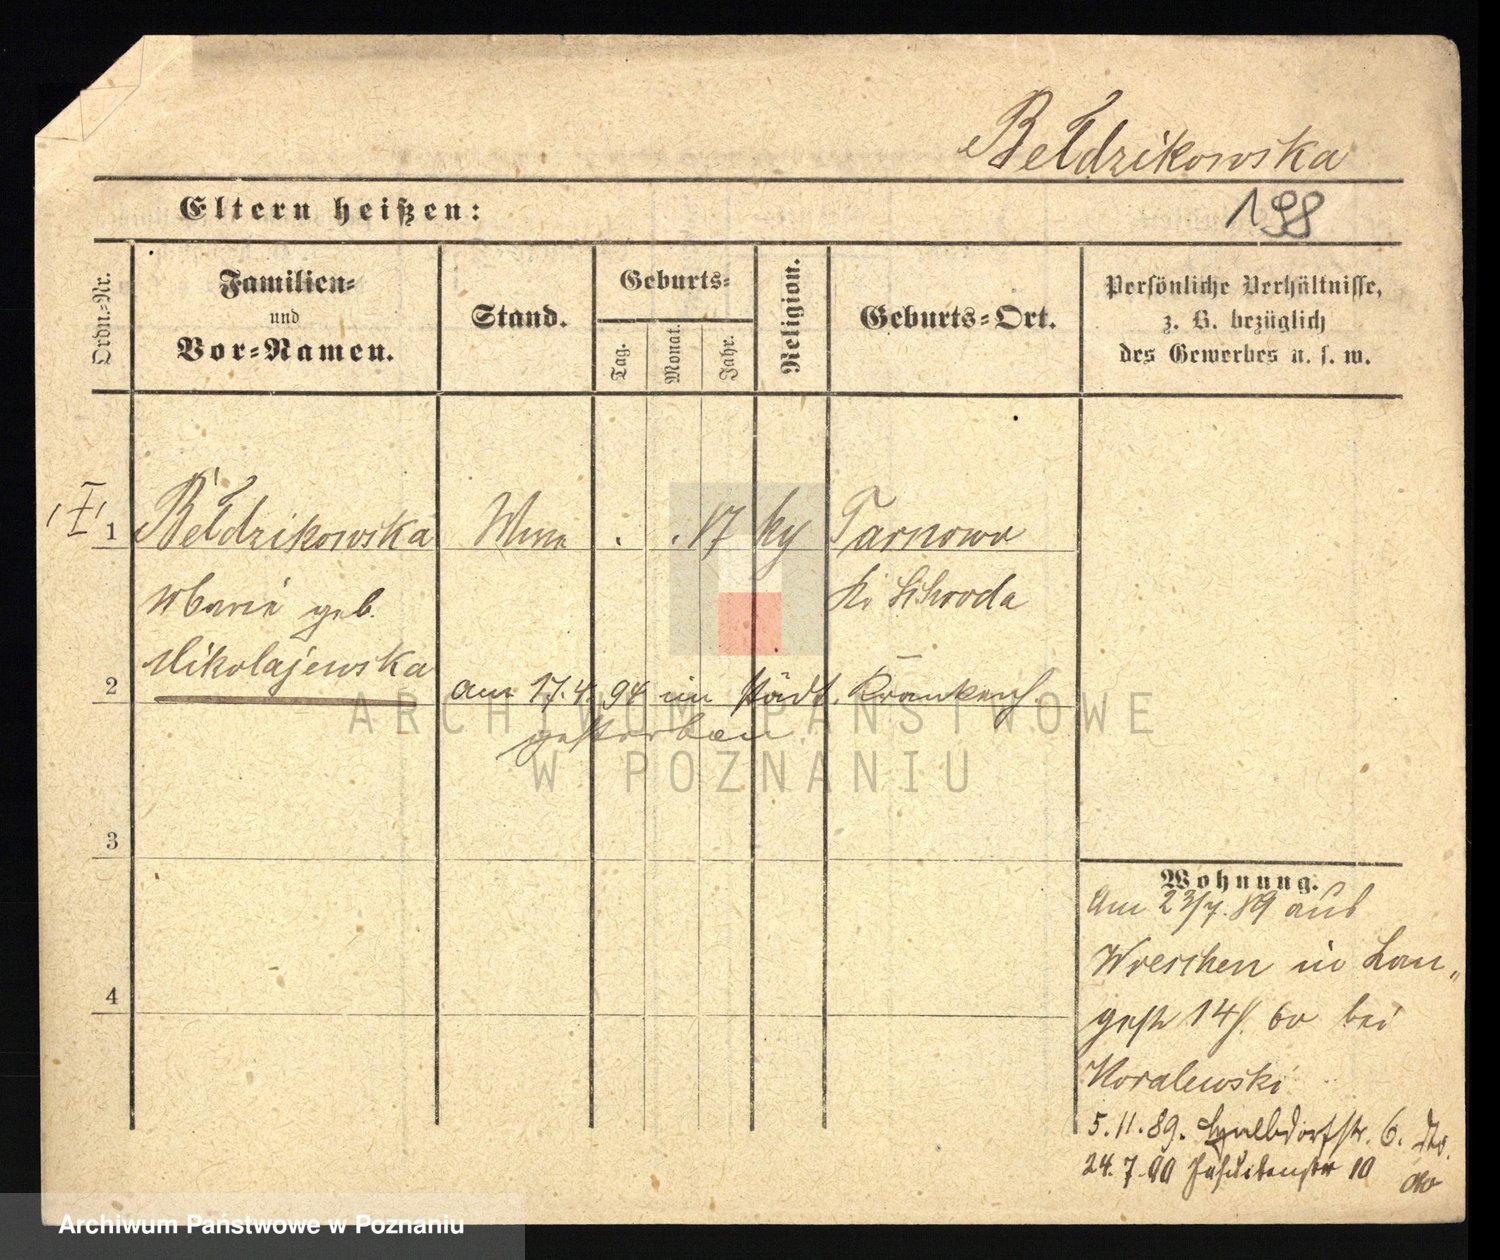 Bełdzikowska
Eltern heißen:
198
Ordn.-Nr.
Familien-
und
Vor-Namen.
Stand.
Geburts-
Tag.
Monat.
Jahr.
Religion.
Geburts-Ort.
Persönliche Verhältnisse,
z. B. bezüglich
des Gewerbes u. s. w.
I
1 Bełdzikowska . . 17 ky Tarnowo
Marie geb. Kr Schroda
Mikolajewska
2 am 17. 4. 94 im städt. Krankenh
gestorben
3
4
Wohnung.
Am 23/7. 89 aus
Wreschen in Lan„
gestr 14/ bei
Koralewski
5. 11. 89. Halbdorfstr. 6.
24. 7. 90 Jesuitenstr 10 do
ARCHIWUM PAŃSTWOWE
W POZNANIU
Archiwum Państwowe w Poznaniu